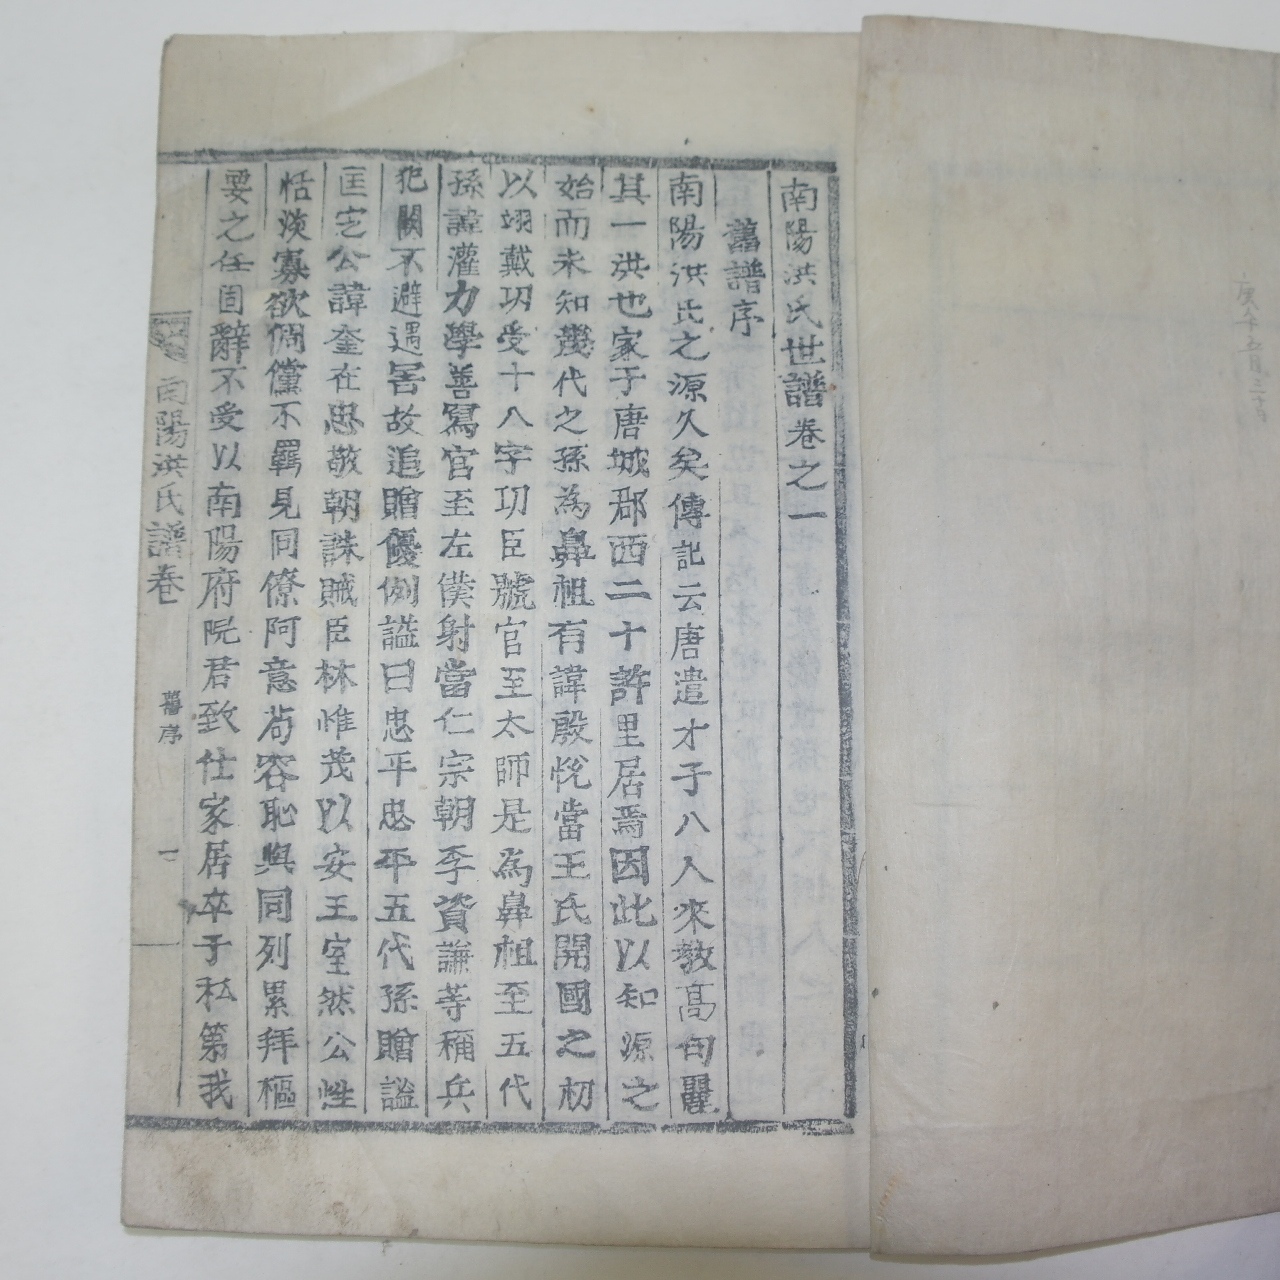 南陽洪氏世譜卷之一
舊譜序
南陽洪氏之源久矣傳記云唐遣才子八人來教高句麗
其一洪也家于唐城郡西二十許里居焉因此以知源之
始而未知幾代之孫為鼻祖有諱殷悅當王氏開國之初
以翊戴功受十八字功臣號官至太師是為鼻祖至五代
孫諱灌力學善寫官至左僕射當仁宗朝李資謙等稱兵
犯闕不避遇害故追贈優例謚曰忠平忠平五代孫贈謚
匡定公諱奎在忠敬朝誅賊臣林惟茂以安王室然公性
恬淡寡欲倜儻不羈見同僚阿意苟容恥與同列累拜樞
要之任固辭不受以南陽府院君致仕家居卒于私第我
南陽洪氏譜卷
舊序
一